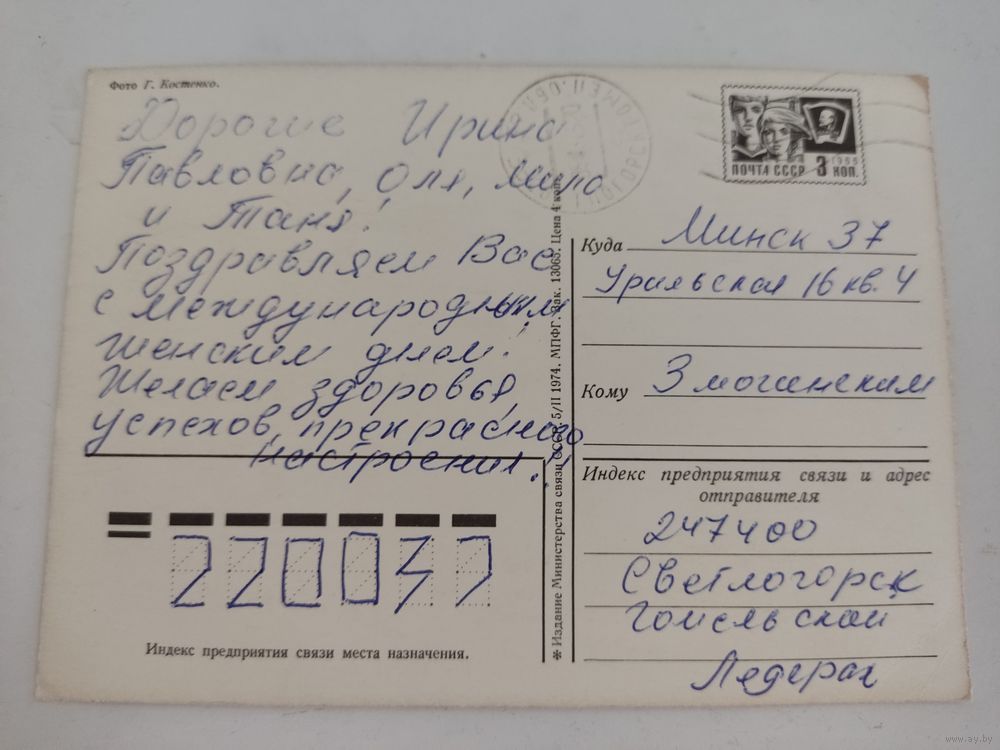 Фото Г. Костенко.
Дорогие Ирина
Павловна, Оля, Мила
и Таня!
Поздравляем Вас
с международным
женским днем!
Желаем здоровья,
успехов, прекрасного
настроения!
220037
Индекс предприятия связи места назначения.
Издание Министерства связи СССР. 5/II 1974. МПФГ. Зак. 13065. Цена 4 коп.
ПОЧТА СССР 3 КОП.
1966
Куда Минск 37
Уральская 16 кв. 4
Кому Змогинским
Индекс предприятия связи и адрес
отправителя
247400
Светлогорск
Гомельской
Ледерах
www.ay.by